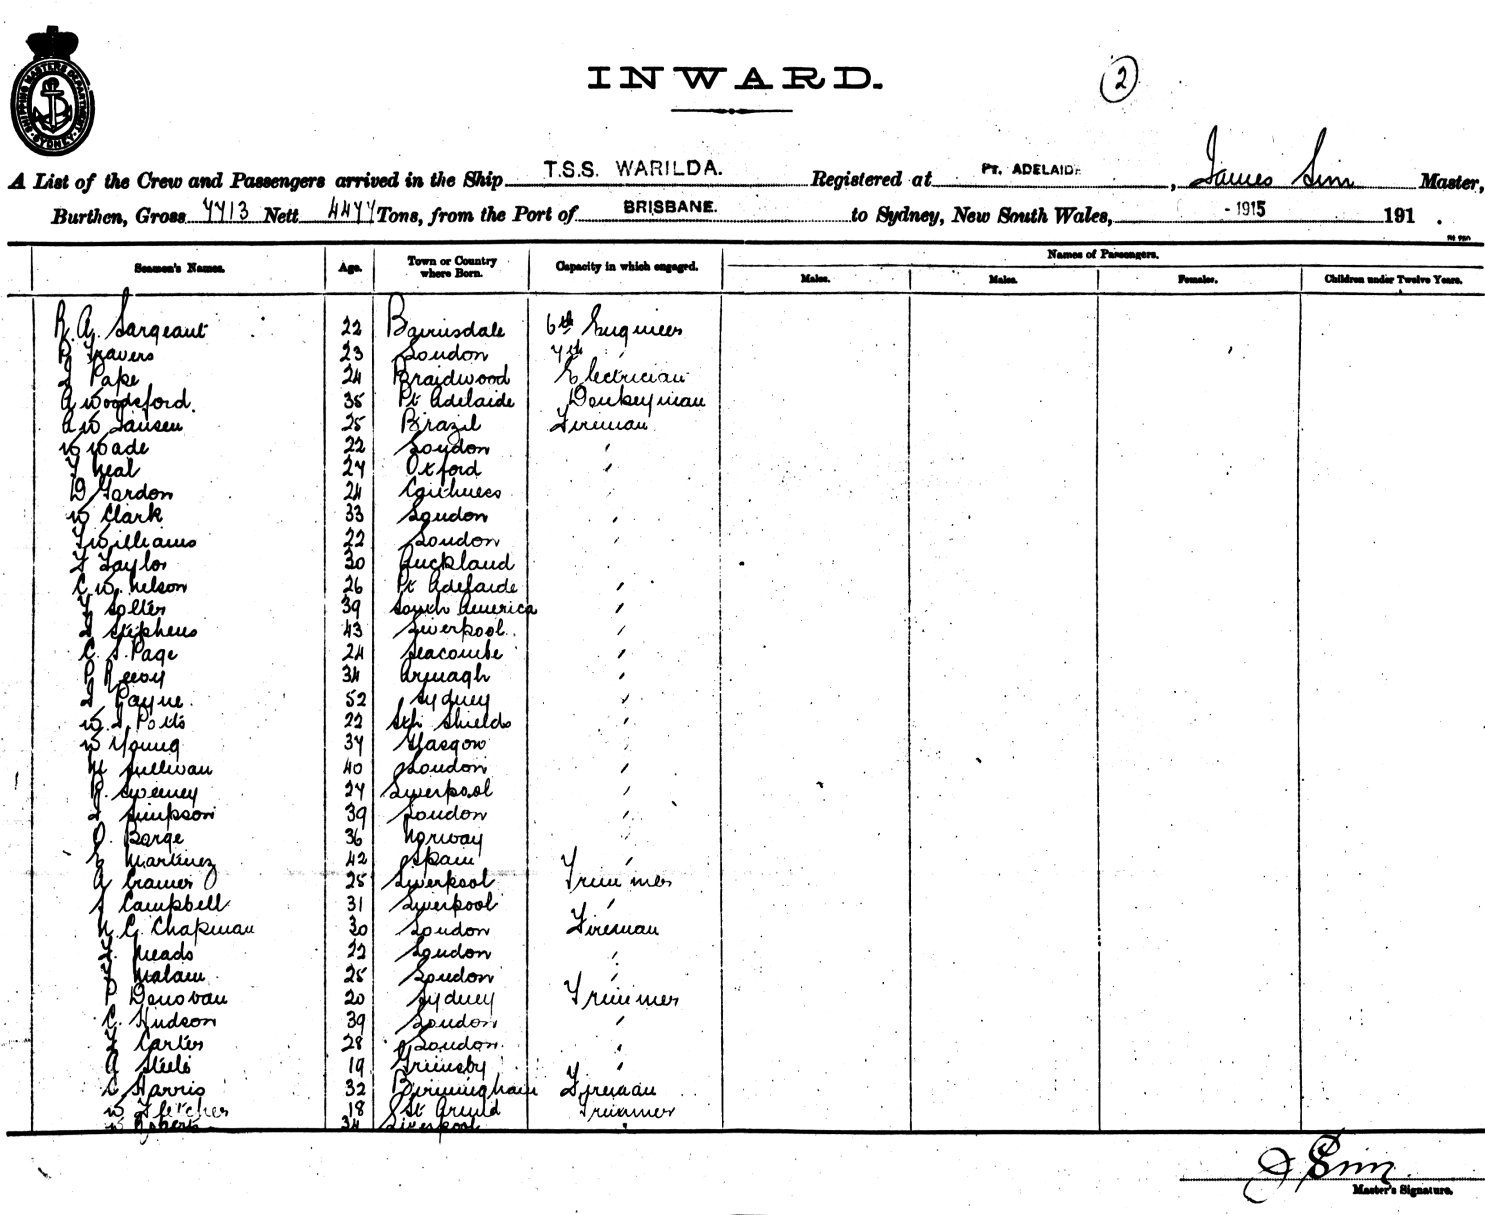 INWARD.
2
SHIPPING MASTERS DEPARTMENT SYDNEY
A List of the Crew and Passengers arrived in the Ship T.S.S. WARILDA. Registered at PT. ADELAIDE, James Sim Master,
Burthen, Gross 7713 Nett 4477 Tons, from the Port of BRISBANE. to Sydney, New South Wales, - 1915 191 .
Names of Passengers.
Seamen's Names. Age. Town or Country where Born. Capacity in which engaged. Males. Males. Females. Children under Twelve Years.
R. A. Sargeant 22 Bairnsdale 6th Engineer
Travers 23 London 7th "
Pape 24 Braidwood Electrician
A Woodsford. 35 Pt Adelaide Donkeyman
A W Jansen 25 Brazil Fireman
W Wade 22 London "
Neal 27 Oxford "
D Gordon 24 Caithness
W Clark 33 London "
Williams 22 London "
Taylor 30 Auckland
C. W. Nelson 26 Pt Adelaide "
Solter 39 South America "
Stephens 43 Liverpool. "
C. S. Page 24 Seacombe "
P 34 Armagh "
Payne. 52 Sydney "
W. Potts 22 Sth Shields "
W Young 37 Glasgow "
Sullivan 40 London "
Sweeney 27 Liverpool "
Simpson 39 London "
O. Borge 36 Norway
Martinez 42 Spain "
A Cramer 25 Liverpool Trimmer
Campbell 31 Liverpool "
Chapman 30 London Fireman
Meads 22 London "
Malam 25 London "
P Donovan 20 Sydney Trimmer
C. Hudson 39 London "
Carter 28 London. "
A Steele 19 Grimsby "
C Harris 32 Birmingham Fireman
W Fletcher 18 St Arnud Trimmer
W Roberts 34 Liverpool "
J Sim
Master's Signature.